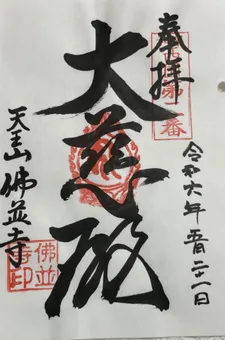 奉拝
大慈殿
令和六年五月二十一日
天王山佛並寺
佛並
寺印